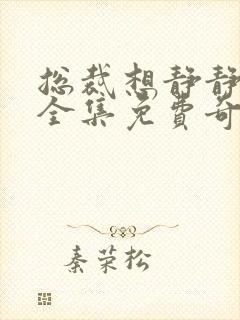 总裁想静静
全集免费奇
秦荣松